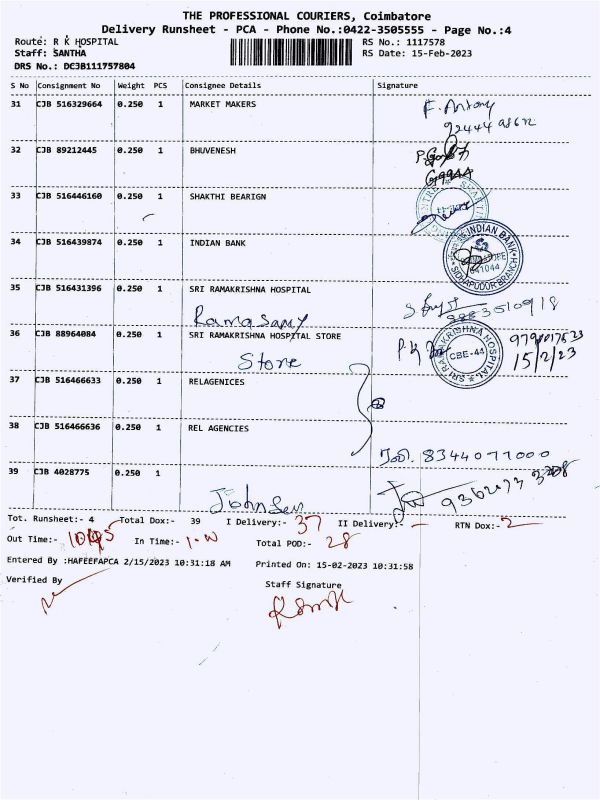 THE PROFESSIONAL COURIERS, Coimbatore
Delivery Runsheet - PCA - Phone No.:0422-3505555 - Page No.:4
Route: R K HOSPITAL RS No.: 1117578
Staff: SANTHA RS Date: 15-Feb-2023
DRS No.: DCJB111757804
S No Consignment No Weight PCS Consignee Details Signature
31 CJB 516329664 0.250 1 MARKET MAKERS F. Antony
32 CJB 89212445 0.250 1 BHUVENESH
33 CJB 516446160 0.250 1 SHAKTHI BEARIGN
34 CJB 516439874 0.250 1 INDIAN BANK INDIAN BANK
641044
SIDDAPUDUR BRANCH
35 CJB 516431396 0.250 1 SRI RAMAKRISHNA HOSPITAL
Ramasamy
36 CJB 88964084 0.250 1 SRI RAMAKRISHNA HOSPITAL STORE SRI RAMAKRISHNA HOSPITAL
CBE-44 15/2/23
Store
37 CJB 516466633 0.250 1 RELAGENICES
38 CJB 516466636 0.250 1 REL AGENCIES
8344077000
39 CJB 4028775 0.250 1
Tot. Runsheet:- 4 Total Dox:- 39 I Delivery:- 37 II Delivery:- – RTN Dox:- 2
Out Time:- In Time:- Total POD:- 28
Entered By :HAFEEFAPCA 2/15/2023 10:31:18 AM Printed On: 15-02-2023 10:31:58
Verified By Staff Signature